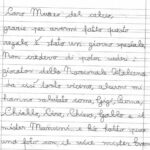 Caro Museo del calcio,
grazie per avermi fatto questo
regalo è stato un giorno speciale,
Non credevo di poter vedere i
giocatori della Nazionale Italiana
da così tanto vicino, alcuni mi
hanno salutato come, Gigi,
Chiello, Ciro, Chiesa, e il
mister Mancini e ho fatto pure
una foto con il vice mister